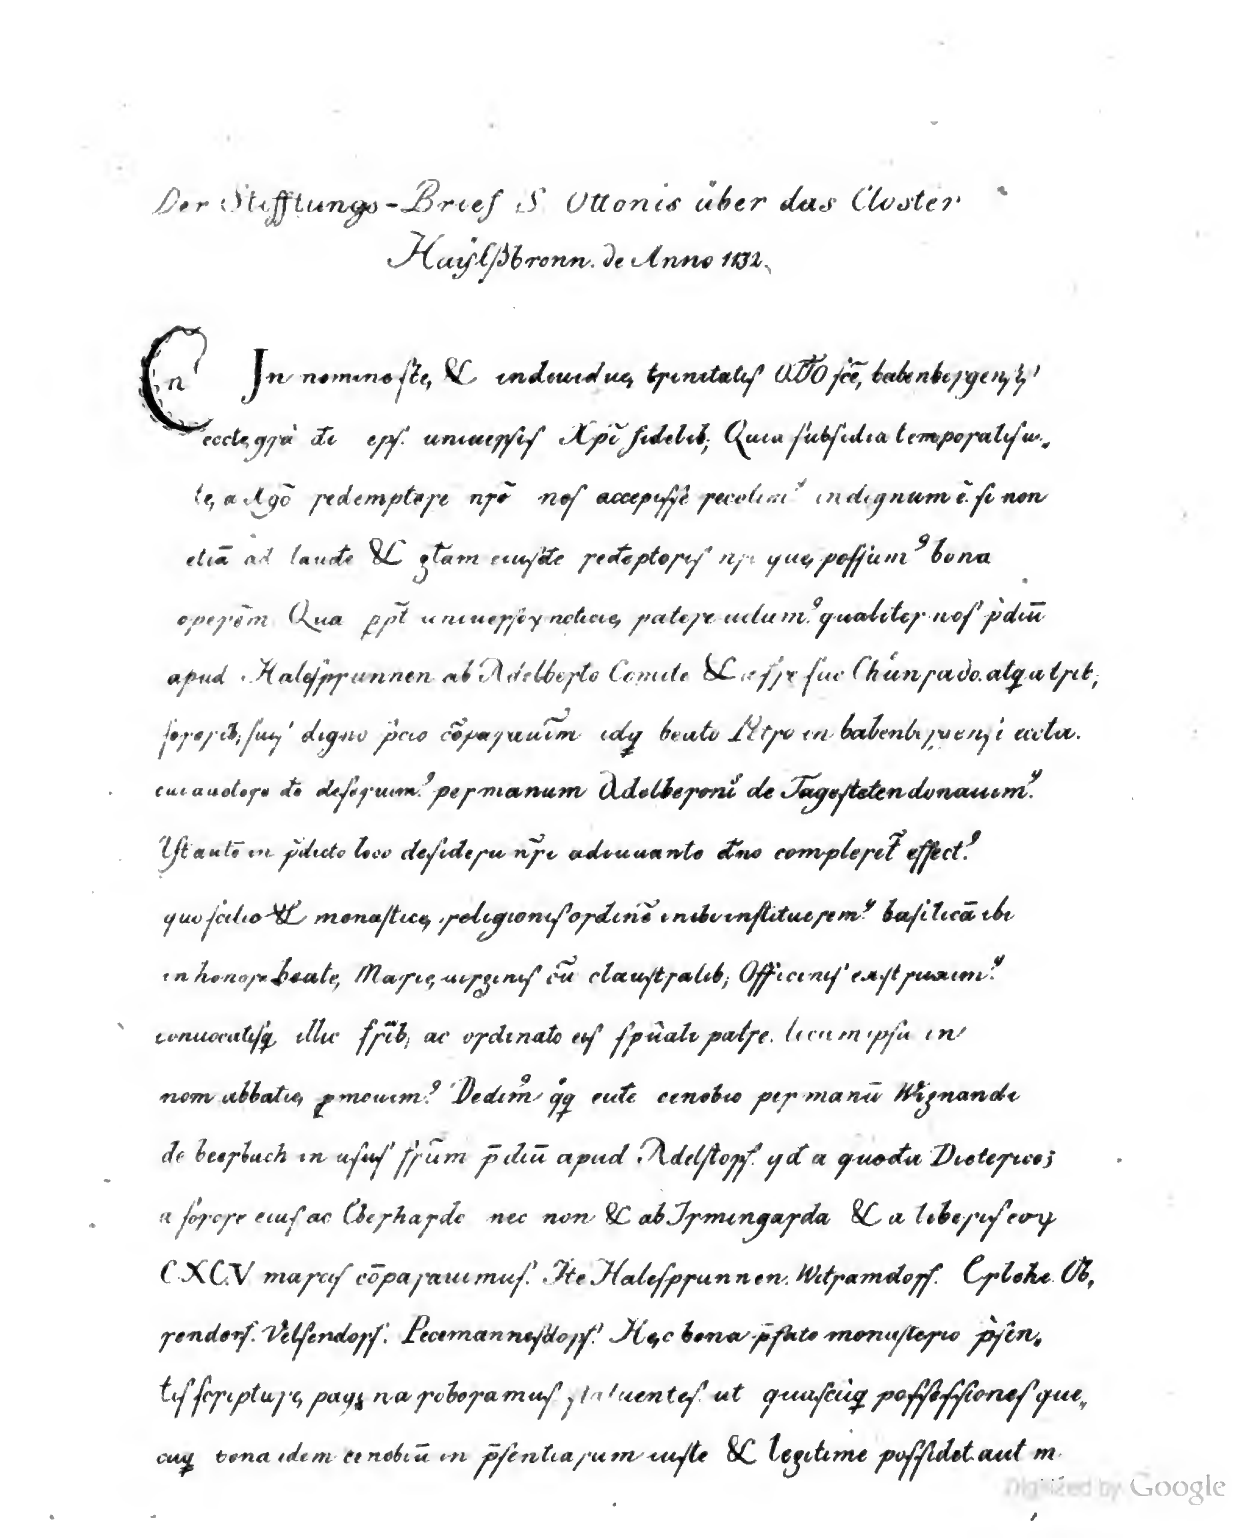 Der Stifftungs-Brief S. Ottonis über das Closter
Haÿlßbronn. de Anno 1132.
Cn
In nomine scē, & indiuidue, trinitatis OTTO scē, babenbergensis
eccle, gra di eps. uniuersis Xpi fidelib; Quia subsidia temporalis ui„
te, a Ago redemptore nro nos accepisse recolim9 indignum ē. si non
etiā ad laude & gtam eiusde redeptoris nri que, possum9 bona
operem Qua ppt uniuersoꝝ noticie, patere uolum9 qualiter nos p̄diū
apud Halesprunnen ab Adelberto Comite & a fre suo Chunrado. atq a trib;
sororib; suis digno p̄cio cōparauim idq beato Petro in babenbergensi eccla.
cui auctore do deseruim9 per manum Adelberoni de Tagesteten donauim9
Ut aute in p̄dicto loco desiderii nri adiuuante dno compleret effect9
quo scilic & monastice, religionis ordinē inibi institueremˀ basilicā ibi
in honore beate, Marie, uirginis cū claustralib; Officinis exstruxim9
conuocatisq illic frib; ac ordinato eis spuali patre. locum ipsū in
nom abbatie, pmouim9 Dedim9 qq eide cenobio per manū Wignandi
de beerbach in usus frum p̄diū apud Adelstorf. qd a quoda Dieterico;
a sorore eius ac Eberhardo nec non & ab Irmingarda & a liberis eoꝝ
CXCV marcis cōparauimus. Ite Halesprunnen. Witramdorf. Erlehe Ob,
rendorf. Velsendorf. Pecemannesdorf. Hec bona p̄fato monasterio p̄sen„
tis scripture, pagina roboramus statuentes ut quascūq possessiones que„
cuq bona idem cenobiū in p̄sentiarum iuste & legitime possidet aut in
Digitized by Google